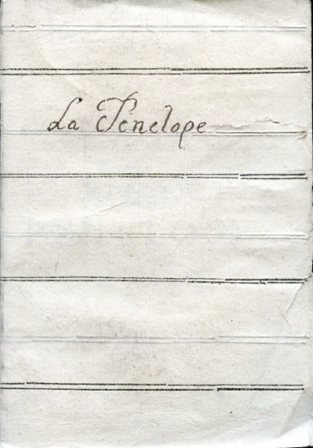 La Pénelope